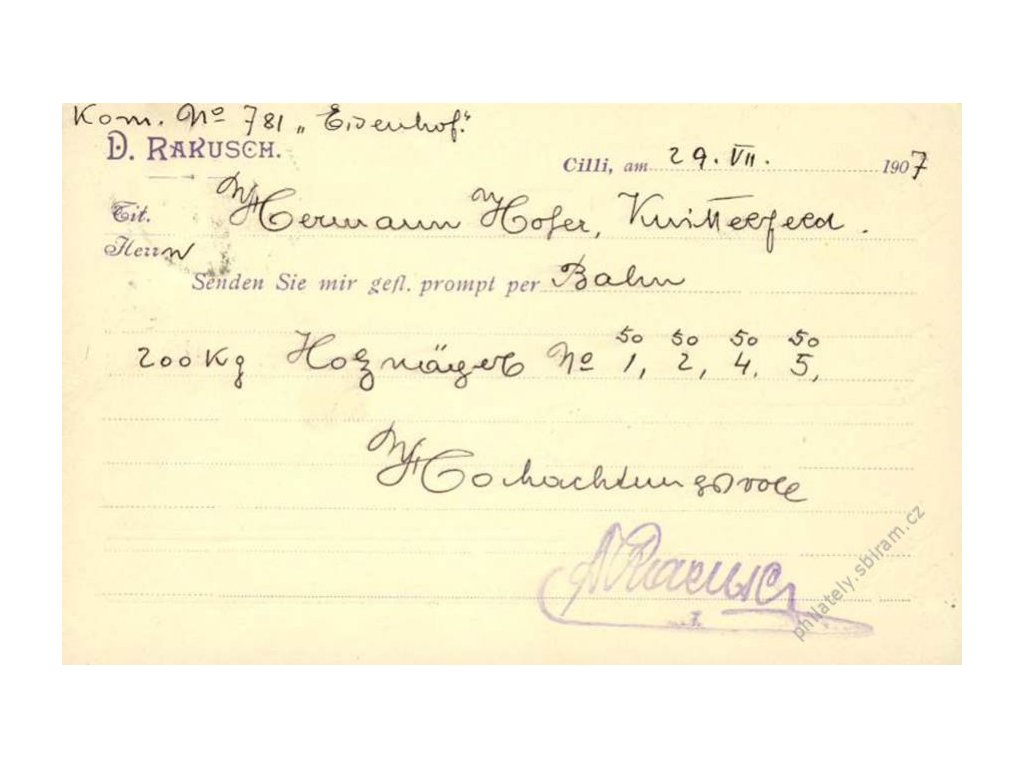 Kom. No 781 „Eisenhof."
D. RAKUSCH.
Cilli, am 29. VII. 1907
Tit. Hermann Hofer, Knittelfeld.
Herrn
Senden Sie mir gefl. prompt per Bahn
50 50 50 50
200 Kg Holznägel No 1, 2, 4, 5,
Hochachtungsvoll
D Rakusch
philately.sbiram.cz